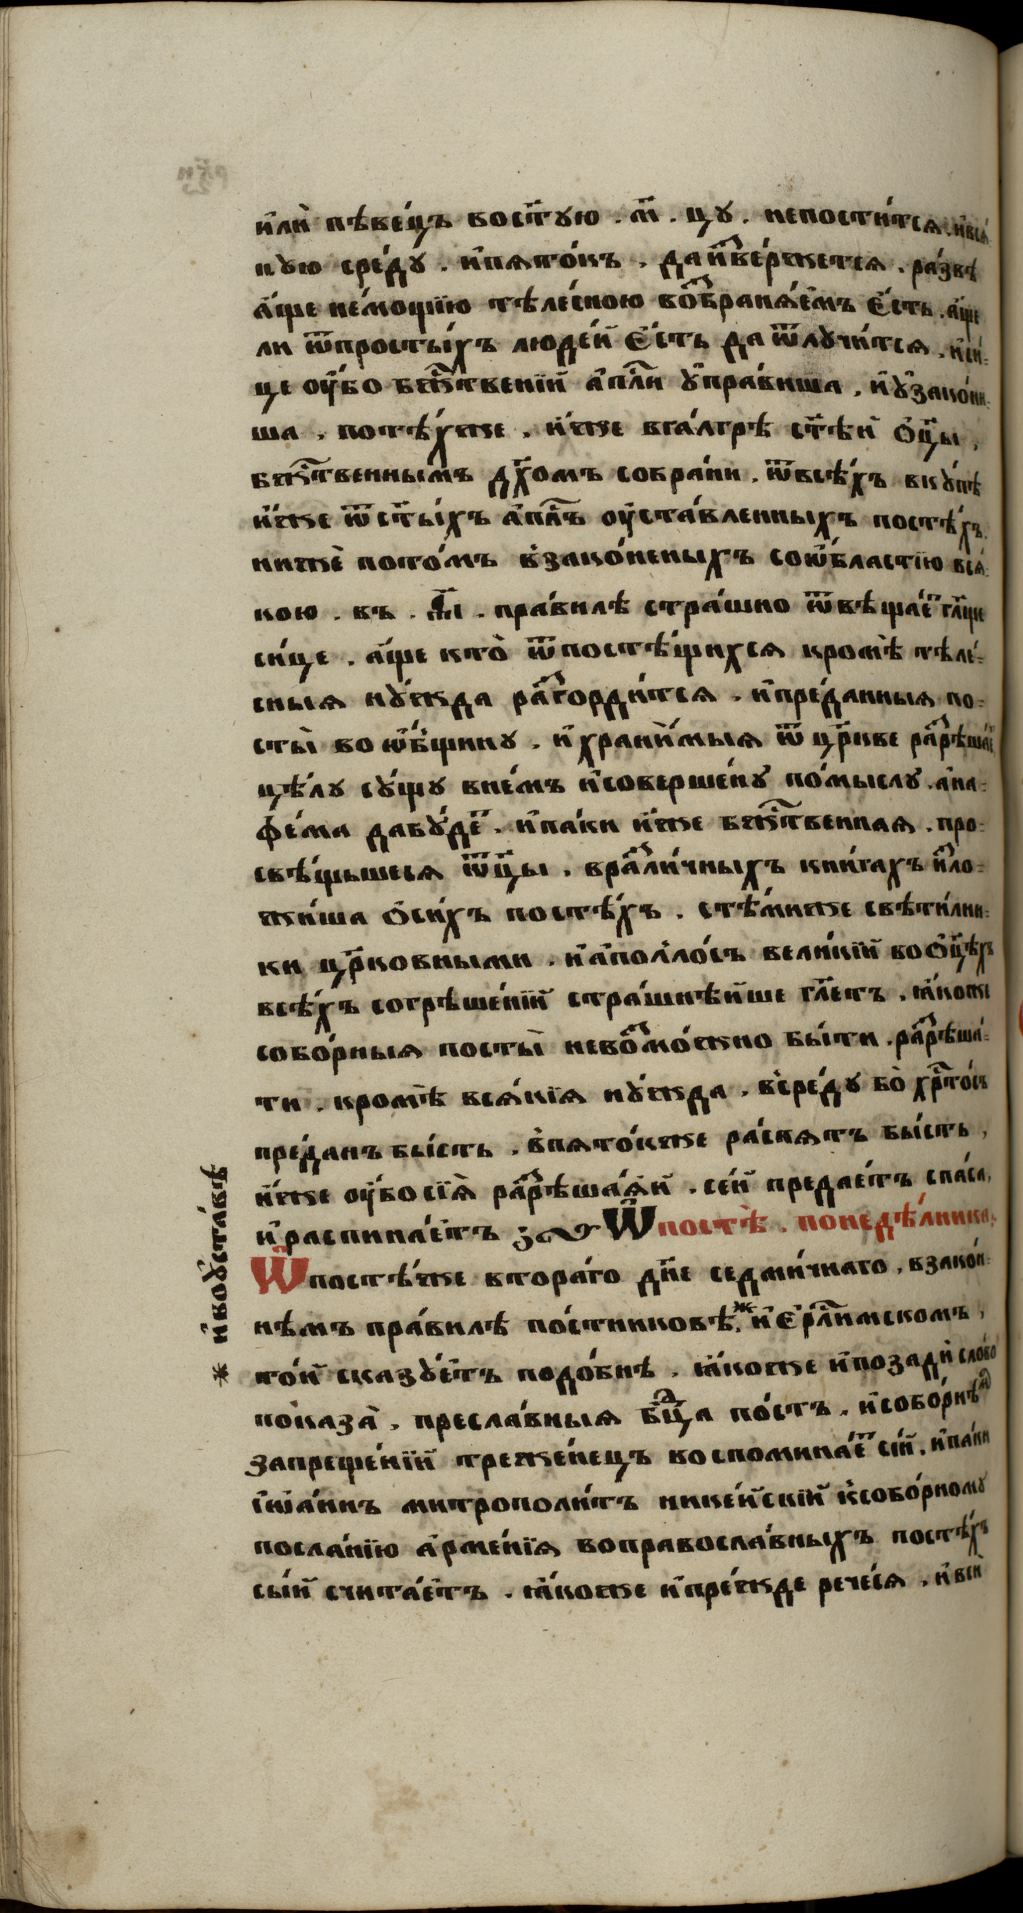 и҆лѝ пѣве́цъ вост҃ую . м҃ . цу . непости́тся . и҆вся́
кую сре́ду . и҆пято́къ . да и҆зве́ржется . ра́звѣ
а҆́ще не́мощїю тѣле́сною возбраня́емъ є҆́сть . а҆́ще
ли ѿпросты́хъ люде́й є҆́сть да ѿлучи́тся . и҆си́-
це оу҆́бо бж҃твенїи а҆п҃ли у҆пра́виша , и҆у҆зако́ни-
ша . потѣ́хже . и҆́же вга́лгрѣ ст҃ѣи ѻ҆ц҃ы ,
бж҃твеннымъ дх҃омъ собра́ни . ѿвсѣ́хъ вку́пѣ
и҆́же ѿ ст҃ы́хъ а҆п҃лъ оу҆ста́вленныхъ постѣ́хъ .
нижѐ пото́мъ взако́неныхъ соѡ҆́бластїю вся́-
кою . въ . а҃і . пра́вилѣ стра́шно ѿвѣща́етъ гл҃юще
си́це . а҆́ще кто̀ ѿпостѣ́щихся кромѣ̀ тѣле́-
сныя ну́жда разгорди́тся . и҆пре́данныя по-
сты̀ во ѡ҆́бщину . и҆храни́мыя ѿ цр҃кве разрѣша́етъ
цѣ́лу су́щу вне́мъ и҆соверше́ну по́мыслу . а҆на-
фе́ма дабу́детъ . и҆па́ки и҆́же бж҃твенная . про-
свѣ́щьшеся ѻ҆тц҃ы . вразли́чныхъ кни́гахъ и҆зло-
жи́ша ѻ҆си́хъ постѣ́хъ . стѣ́миже свѣти́лни-
ки цр҃ковными . и҆а҆полло́съ вели́кїй воѻ҆ц҃ѣхъ
всѣ́хъ согрѣше́нїй стра́шнѣйше гл҃етъ . ꙗ҆́коже
собо́рныя посты̀ невозмо́жно бы́ти . разрѣша́-
ти . кромѣ̀ вся́кїя ну́жда . всре́ду бо̀ хр҃то́съ
пре́данъ бы́сть . впято́кже ра́спятъ бы́сть ,
и҆́же оу҆́бо сїѧ̀ разрѣша́яй . се́й предае́тъ спа́са ,
и҆распина́етъ ѿпостѣ̀ . понедѣ́лника .
ѿпостѣ́же втора́го дн҃е седми́чнаго , взако́н-
нѣмъ пра́вилѣ по́стниковѣ , ж и҆є҆рл҃имскомъ ,
то́й сказу́етъ подо́бнѣ . ꙗ҆́коже и҆позадѝ сло́во
показа̀ , пресла́вныя бц҃да по́стъ . и҆собо́рнѣмъ
запреще́нїй треже́нецъ воспомина́етъ сі́й . и҆па́ки
і҆ѡа́ннъ митрополи́тъ нике́йскїй ксобо́рному
посла́нїю а҆рме́нїя воправосла́вныхъ постѣ́хъ
сы́й счита́етъ . ꙗ҆́коже и҆пре́жде рече́ся . и҆вси̑
* и҆воу҆ста́вѣ